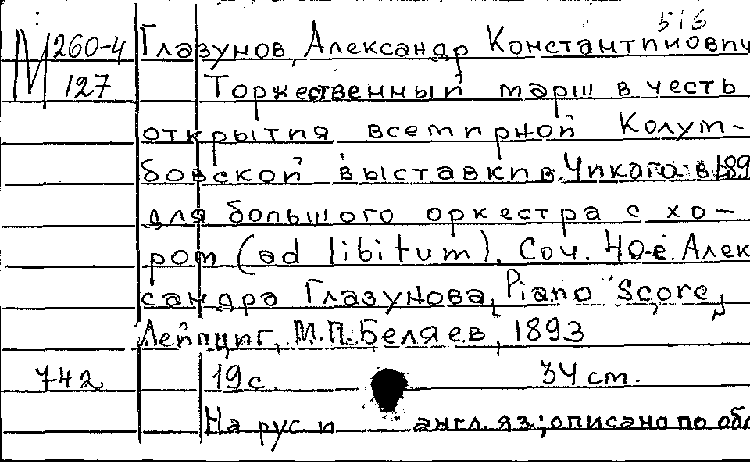 513
М 260-4 Глазунов, Александр Константинович
127 Торжественный марш в честь
открытия всемирной Колум-
бовской выставки в Чикаго в 189
для большого оркестра с хо-
ром (ad libitum). Соч. 40-е Алек
сандра Глазунова, Piano Score,
Лейпциг, М.П. Беляев, 1893
742 19 с. 34 cm.
На рус и англ. яз; описано по обл